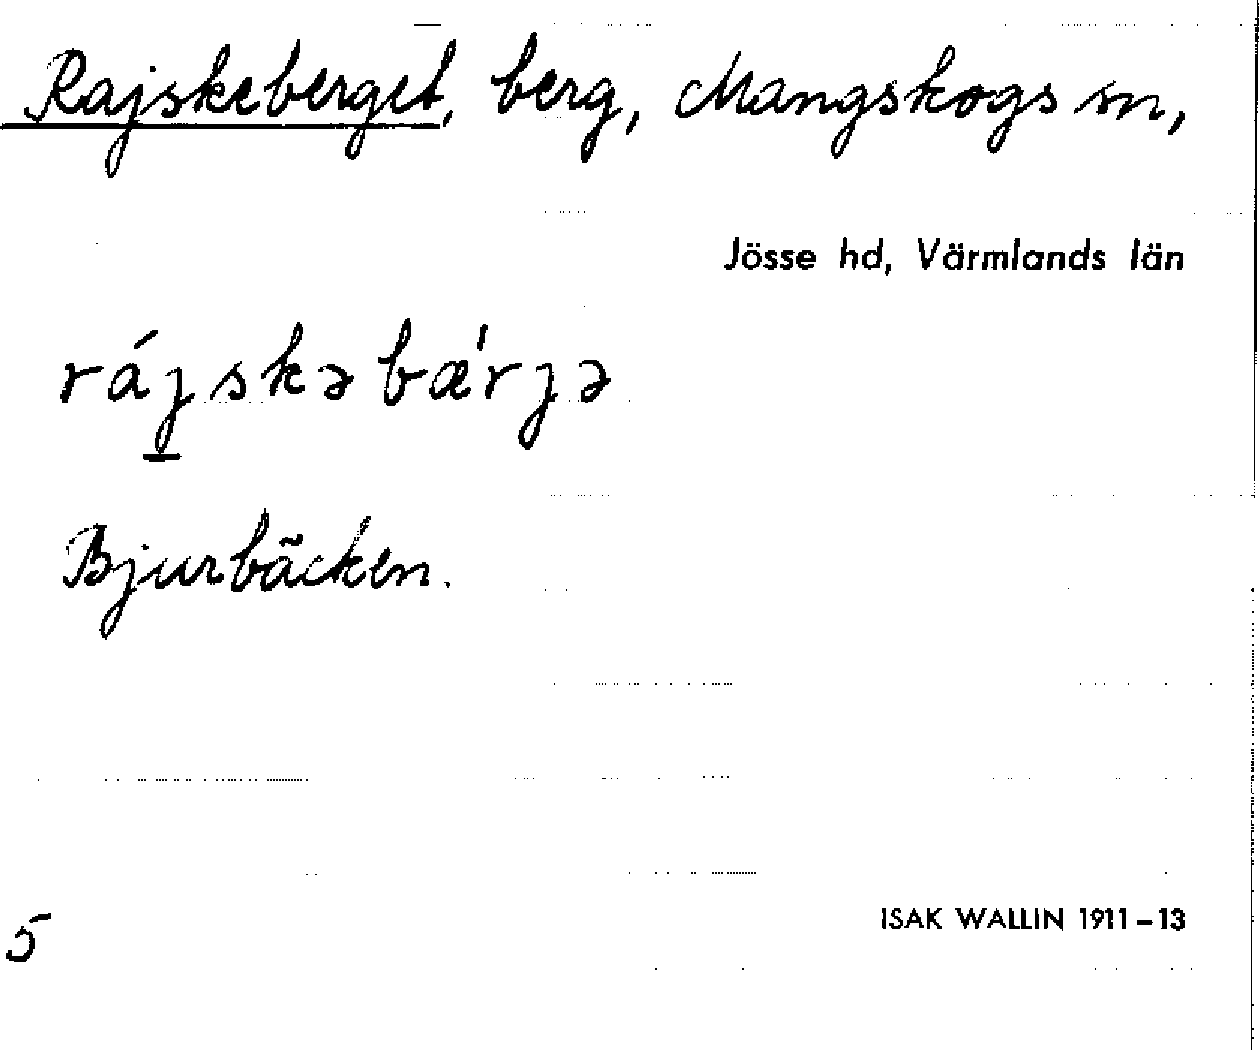 Rajskeberget, berg, Mangskogs sn,
Jösse hd, Värmlands län
rájskəbǽrjə
Bjurbäcken.
ISAK WALLIN 1911-13
5